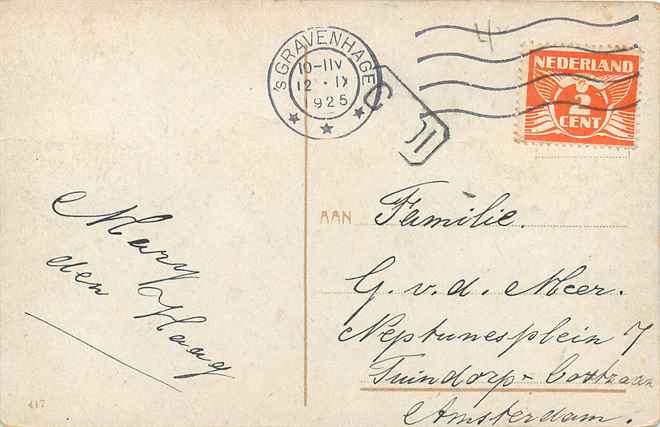 'S GRAVENHAGE
10-11V
12 · IX
1925
NEDERLAND
2
CENT
Mary
den Haag
AAN Familie.
G. v. d. Meer.
Neptunesplein 7
Tuindorp - Oostzaan
Amsterdam.
417